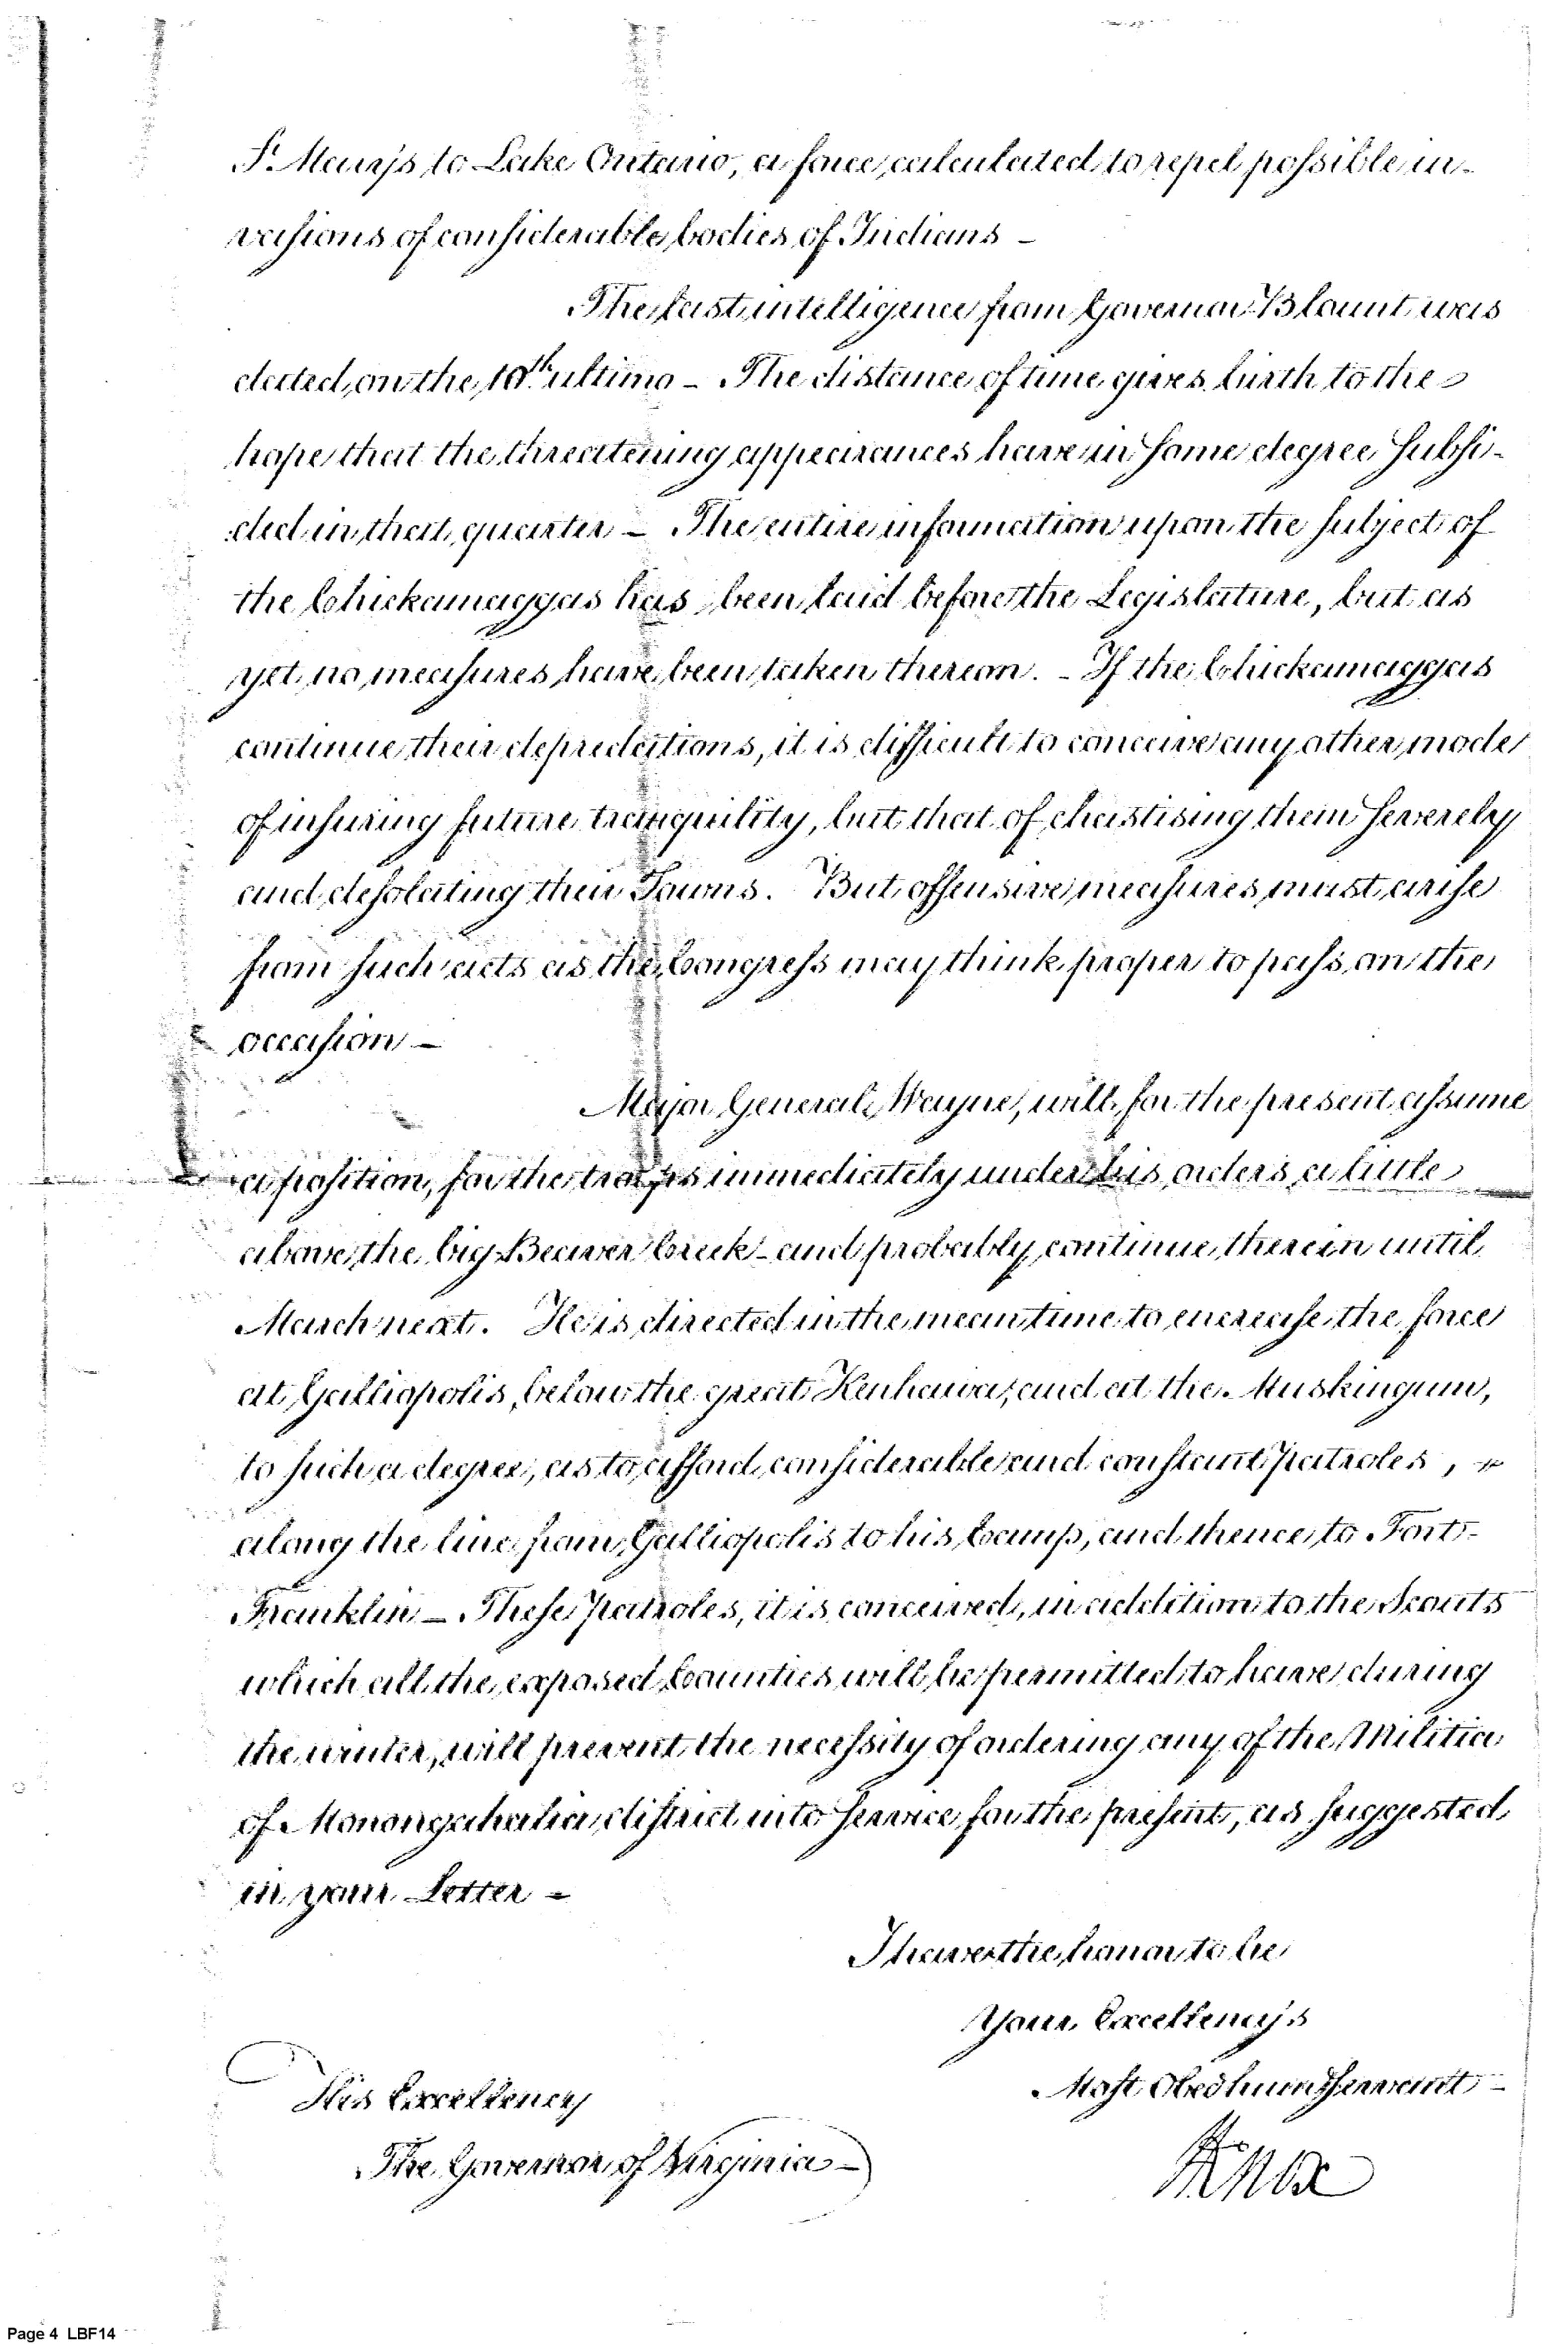 St Mary's to Lake Ontario, a force, calculated to repel possible in-
vasions of considerable bodies of Indians —
The last intelligence from Governor Blount was
dated, on the 10th ultimo — The distance of time gives birth to the
hope that the threatening appearances have in some degree subsi-
ded in that quarter — The entire information upon the subject of
the Chickamaggas has been laid before the Legislature, but as
yet no measures have been taken thereon. — If the Chickamaggas
continue their depredations, it is difficult to conceive any other mode
of insuring future tranquility, but that of chastising them severely
and desolating their Towns. But offensive measures must arise
from such acts as the Congress may think proper to pass on the
occasion —
Major General Wayne, will, for the present assume
a position, for the troops immediately under his orders, a little
above the big Beaver Creek - and probably continue therein until
March next. He is directed in the mean time to encrease the force
at Galliopolis, below the great Kenhawa, and at the Muskingum,
to such a degree, as to afford considerable and constant patroles,
along the line from Galliopolis to his Camp, and thence to Fort-
Franklin — These patroles, it is conceived, in addition to the Scouts
which all the exposed Counties will be permitted to have during
the winter, will prevent the necessity of ordering any of the Militia
of Monongahalia district into service for the present, as suggested
in your Letter —
I have the honor to be
Your Excellency's
Most Obed hum Servant
His Excellency
The Governor of Virginia —
HKnox
Page 4 LBF14